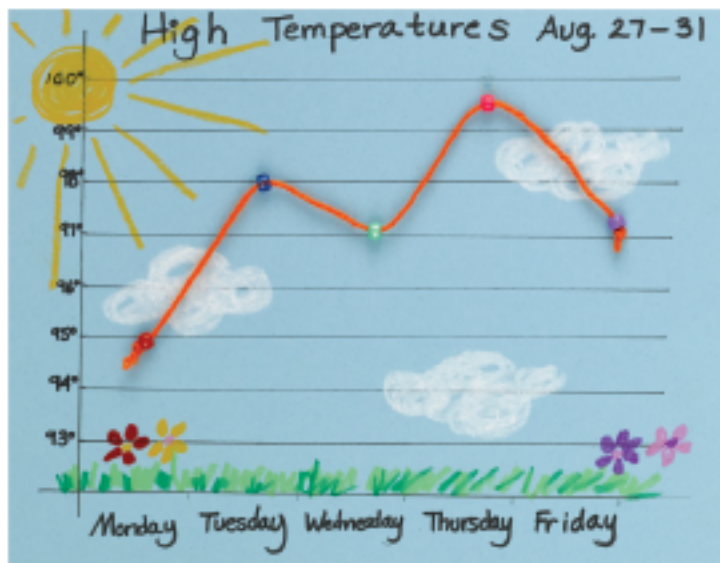 High Temperatures Aug. 27-31
100°
99°
98°
97°
96°
95°
94°
93°
Monday Tuesday Wednesday Thursday Friday